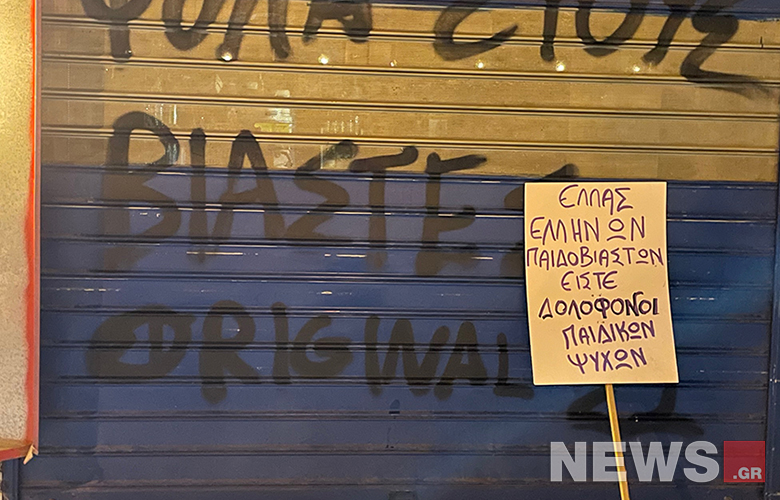 ΦΟΛΑ ΣΤΟΥΣ
ΒΙΑΣΤΕΣ
ORIGINAL
21
ΕΛΛΑΣ
ΕΛΛΗΝΩΝ
ΠΑΙΔΟΒΙΑΣΤΩΝ
ΕΙΣΤΕ
ΔΟΛΟΦΟΝΟΙ
ΠΑΙΔΙΚΩΝ
ΨΥΧΩΝ
NEWS.GR